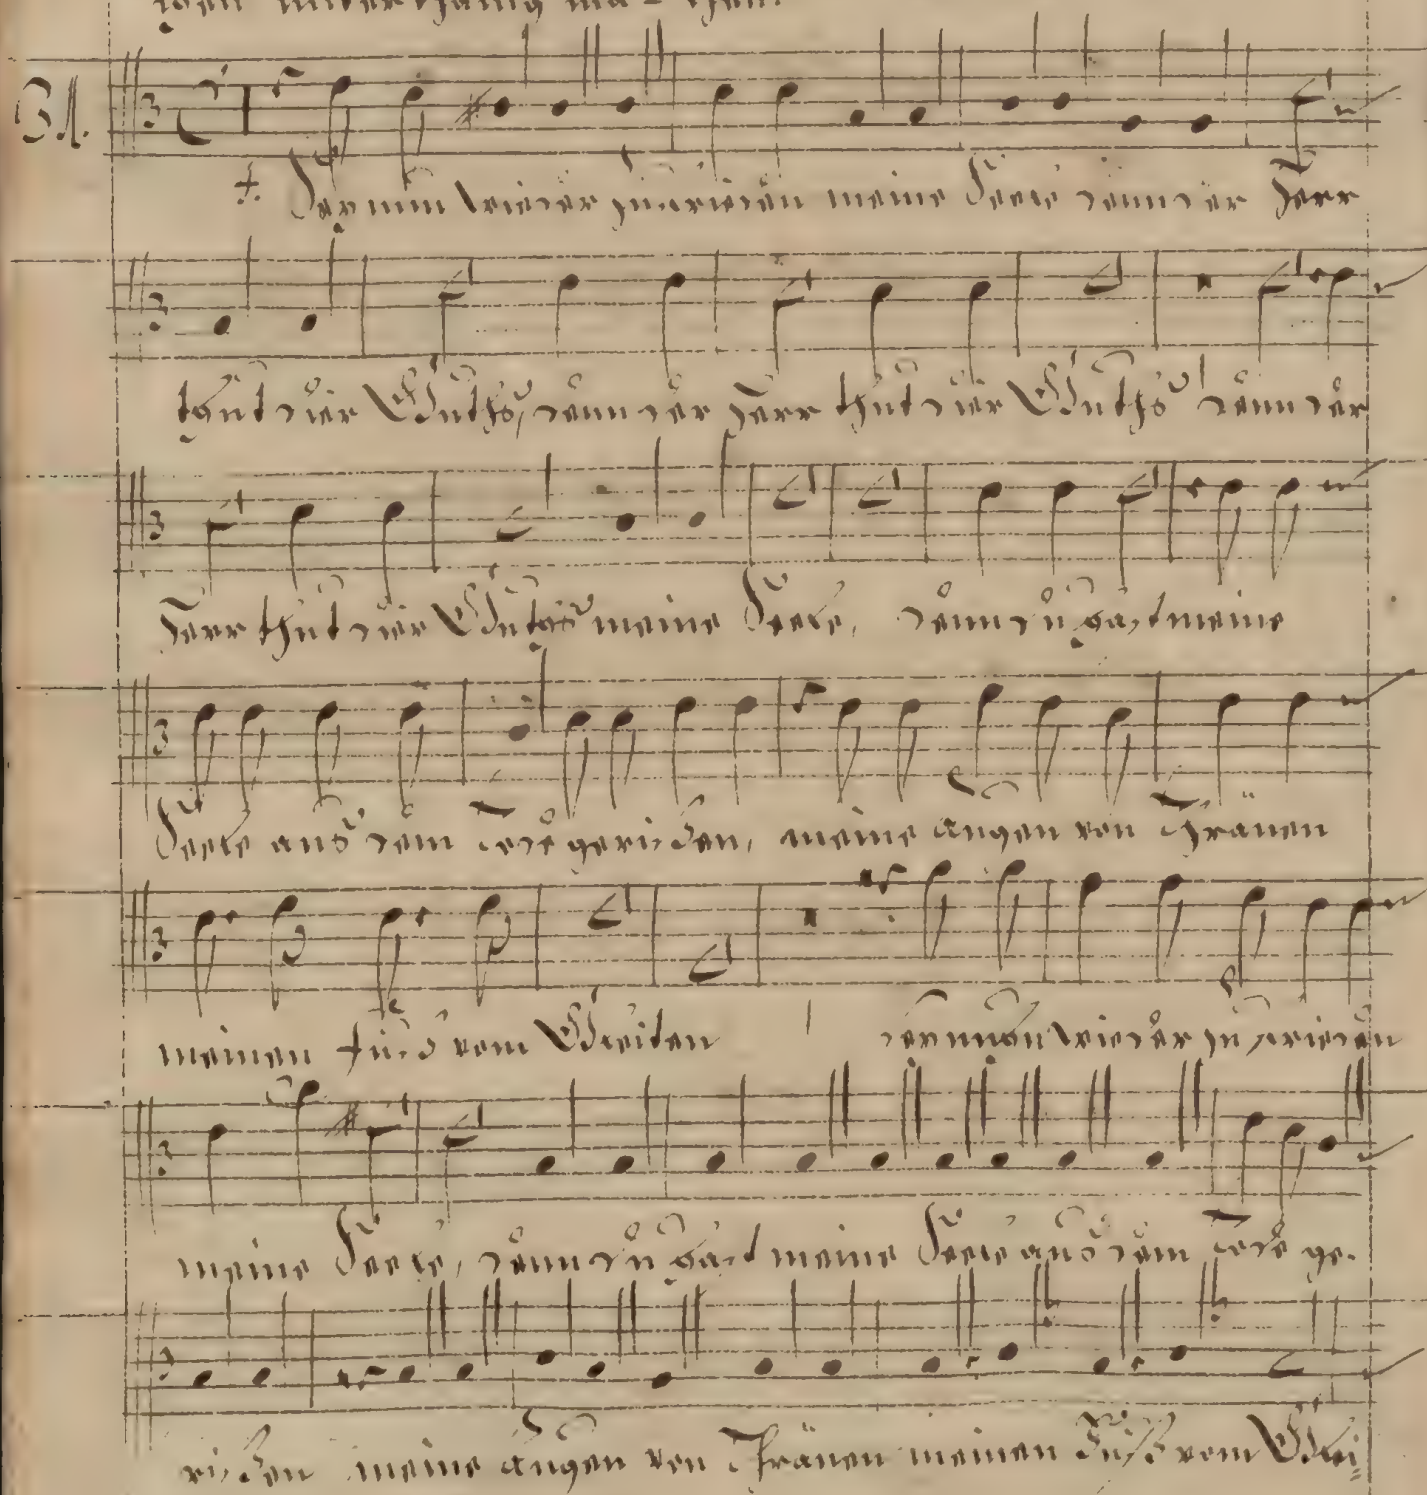 31.
Sey nun wieder zufrieden meine Seele denn der Herr
thut dir Guthß, denn der Herr thut dir Guthß denn der
Herr thut dir Gutheß meine Seele, denn du hast meine
Seele auß dem Tode gerißen, meine Augen von Thränen
meinen Fuß vom Gleiten sey nuhn wieder zufrieden
meine Seele, denn du hast meine Seele auß dem Tode ge-
rißen meine Augen von Thränen meinen Fuß vom Glei=